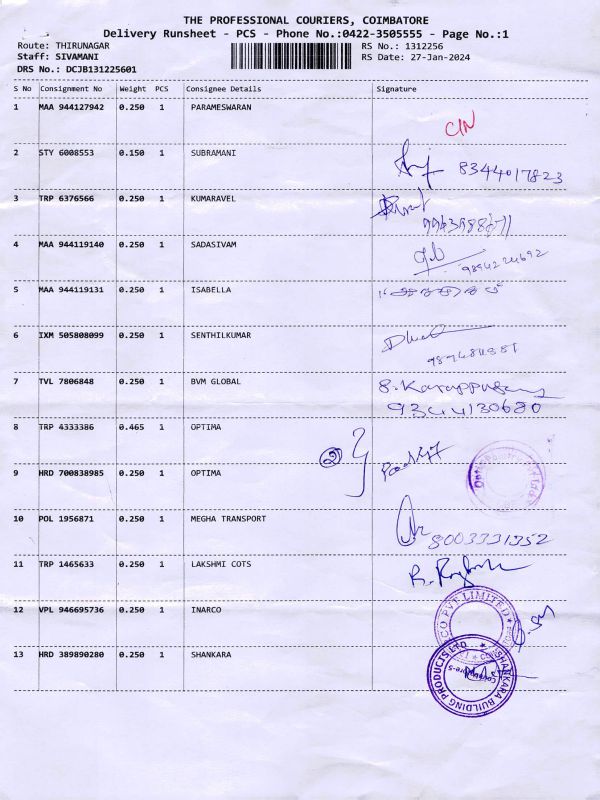 THE PROFESSIONAL COURIERS, COIMBATORE
Delivery Runsheet - PCS - Phone No.:0422-3505555 - Page No.:1
Route: THIRUNAGAR RS No.: 1312256
Staff: SIVAMANI RS Date: 27-Jan-2024
DRS No.: DCJB131225601
S No Consignment No Weight PCS Consignee Details Signature
1 MAA 944127942 0.250 1 PARAMESWARAN
C/N
2 STY 6008553 0.150 1 SUBRAMANI
8344017823
3 TRP 6376566 0.250 1 KUMARAVEL
4 MAA 944119140 0.250 1 SADASIVAM
9894224692
5 MAA 944119131 0.250 1 ISABELLA
6 IXM 505808099 0.250 1 SENTHILKUMAR
7 TVL 7806848 0.250 1 BVM GLOBAL
9344130680
8 TRP 4333386 0.465 1 OPTIMA
2
9 HRD 700838985 0.250 1 OPTIMA
10 POL 1956871 0.250 1 MEGHA TRANSPORT
8003331352
11 TRP 1465633 0.250 1 LAKSHMI COTS
12 VPL 946695736 0.250 1 INARCO
CO PVT LIMITED
13 HRD 389890280 0.250 1 SHANKARA
SHANKARA BUILDING PRODUCTS LTD